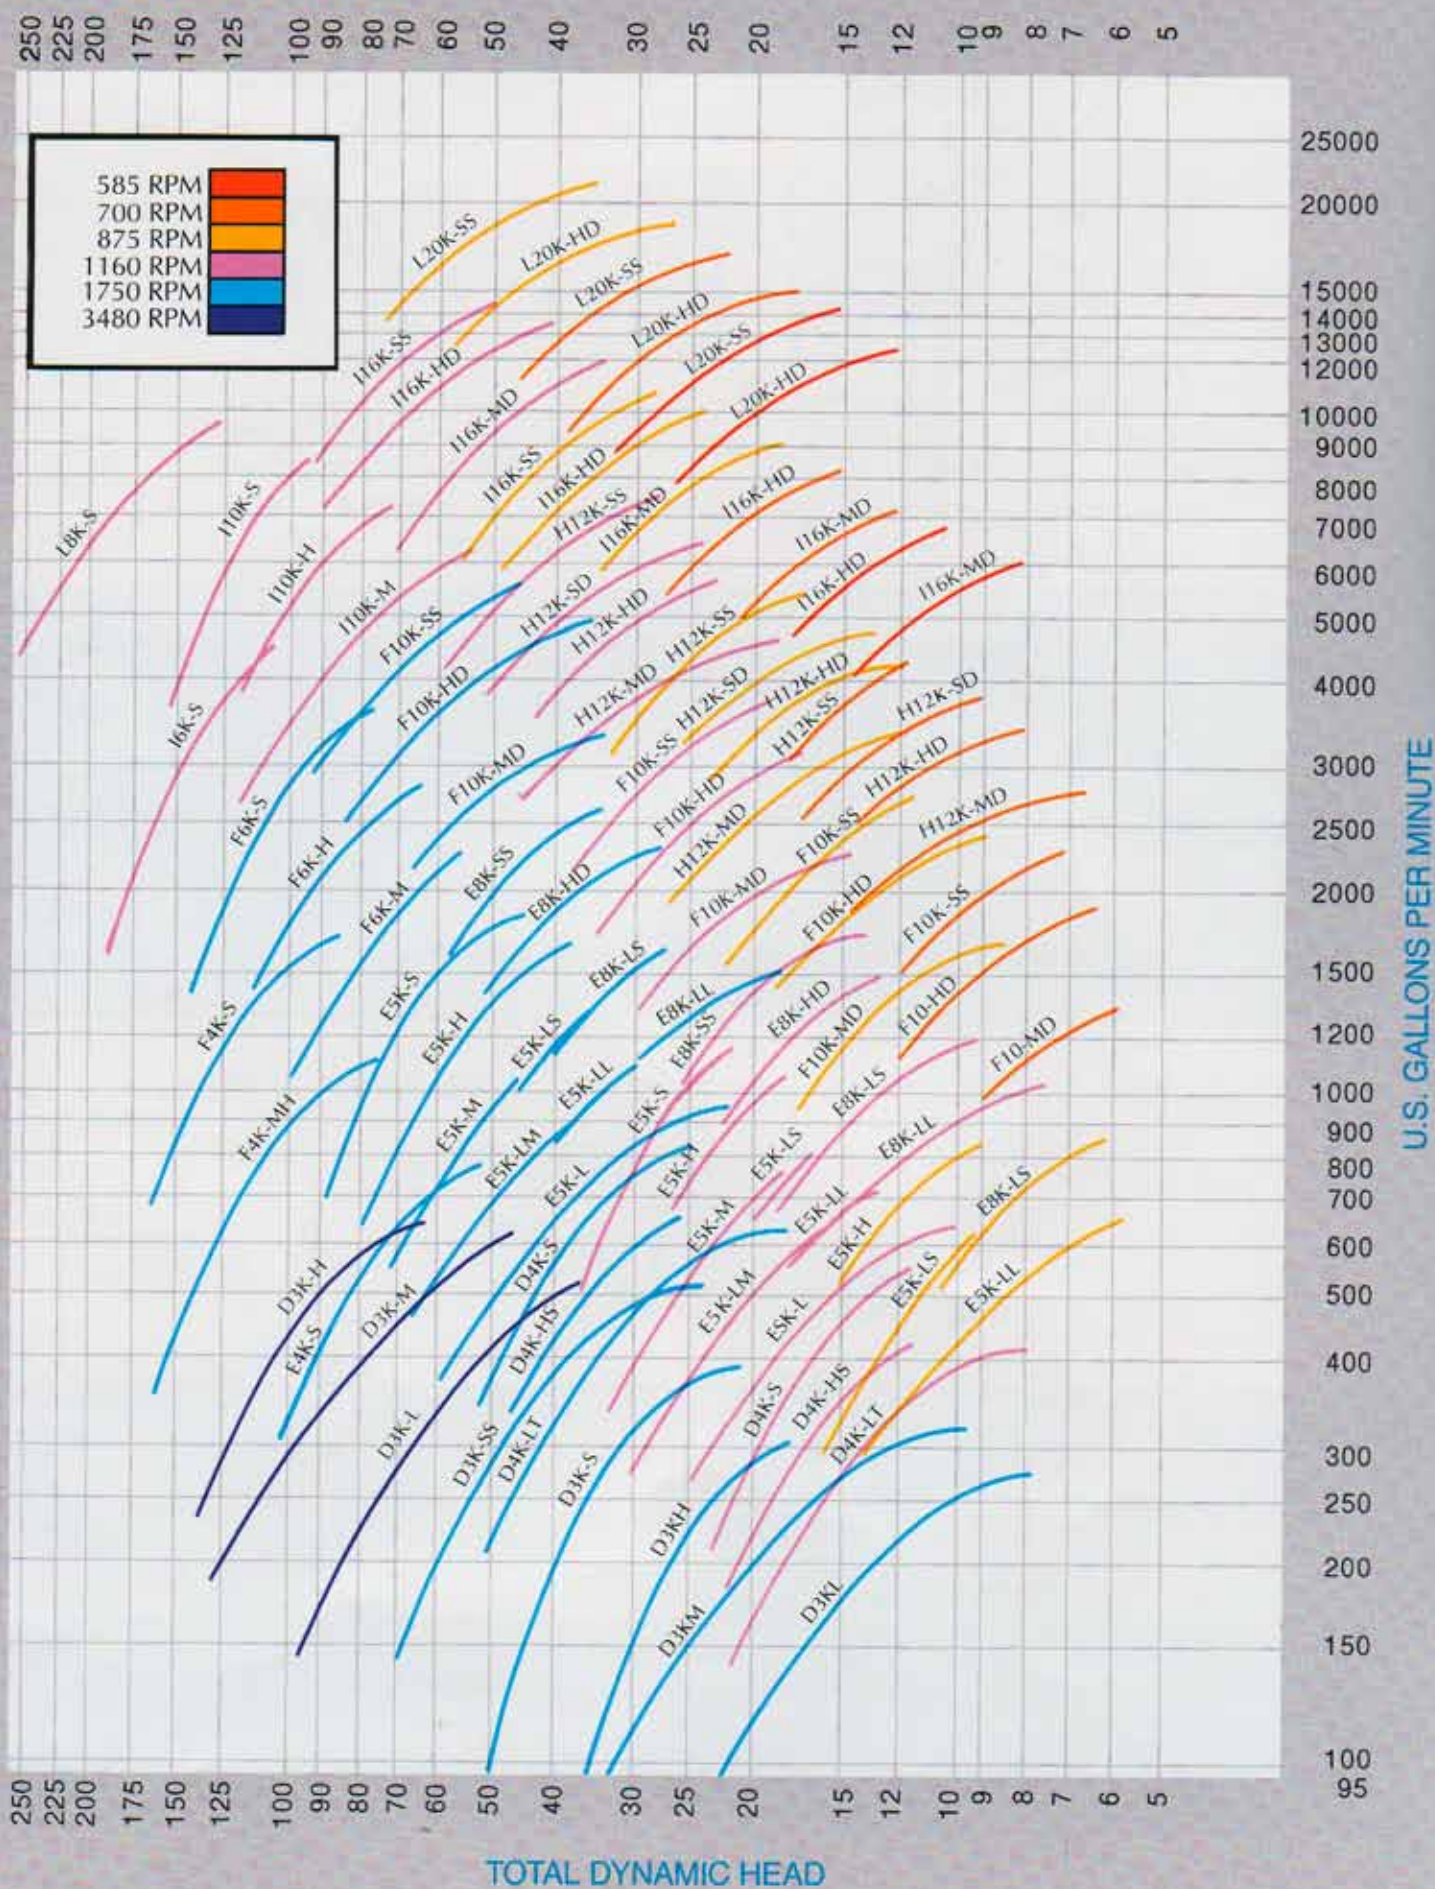 250 225 200 175 150 125 100 90 80 70 60 50 40 30 25 20 15 12 10 9 8 7 6 5
585 RPM
700 RPM
875 RPM
1160 RPM
1750 RPM
3480 RPM
25000
20000
15000
14000
13000
12000
10000
9000
8000
7000
6000
5000
4000
3000
2500
2000
1500
1200
1000
900
800
700
600
500
400
300
250
200
150
100
95
U.S. GALLONS PER MINUTE
L20K-SS
L20K-HD
L20K-SS
L20K-HD
L20K-SS
L20K-HD
I16K-SS
I16K-HD
I16K-MD
I16K-SS
I16K-HD
H12K-SS
I16K-MD
I16K-HD
I16K-MD
I16K-HD
I16K-MD
L8K-S
I10K-S
I10K-H
I10K-M
F10K-SS
H12K-SD
H12K-HD
H12K-SS
I6K-S
F10K-HD
H12K-MD
H12K-SD
H12K-HD
H12K-SS
H12K-SD
H12K-HD
F10K-MD
F10K-SS
F10K-HD
H12K-MD
F10K-SS
H12K-MD
F6K-S
F6K-H
F6K-M
E8K-SS
E8K-HD
F10K-MD
F10K-HD
F10K-SS
F4K-S
E5K-S
E5K-H
E5K-LS
E8K-LS
E8K-LL
E8K-SS
E8K-HD
F10K-MD
F10-HD
F10-MD
F4K-MH
E5K-M
E5K-LM
E5K-LL
E5K-L
E5K-S
E5K-H
E5K-LS
E8K-LS
E8K-LL
E5K-M
E5K-LL
E5K-H
E8K-LS
D3K-H
E4K-S
D3K-M
D4K-S
D4K-HS
E5K-LM
E5K-L
E5K-LS
E5K-LL
D3K-L
D3K-SS
D4K-LT
D3K-S
D4K-S
D4K-HS
D4K-LT
D3KH
D3KM
D3KL
250 225 200 175 150 125 100 90 80 70 60 50 40 30 25 20 15 12 10 9 8 7 6 5
TOTAL DYNAMIC HEAD